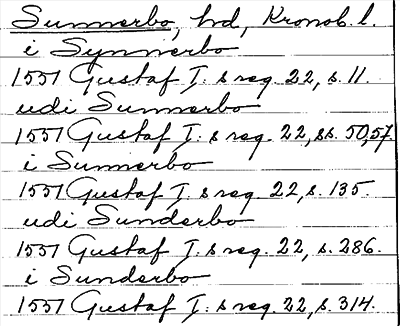 Sunnerbo, hd, Kronob. l.
i Synnerbo
1551 Gustaf I: s reg. 22, s. 11.
udi Sunnerbo
1551 Gustaf I: s reg. 22, ss. 50, 57
i Sunnerbo
1551 Gustaf I: s reg. 22, s. 135.
udi Sunderbo
1551 Gustaf I: s reg. 22, s. 286.
i Sunderbo
1551 Gustaf I: s reg. 22, s. 314.